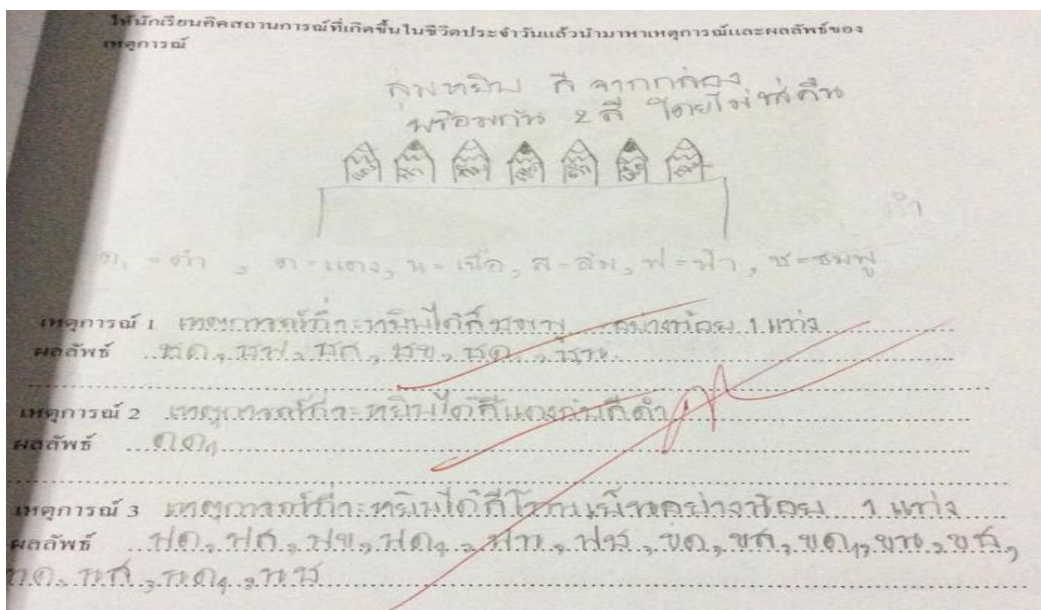 ให้นักเรียนคิดสถานการณ์ที่เกิดขึ้นในชีวิตประจำวันแล้วนำมาหาเหตุการณ์และผลลัพธ์ของ
เหตุการณ์
สุ่มหยิบ สี จากกล่อง
พร้อมกัน 2 สี โดยไม่ใส่คืน
ดำ
ด₁ = ดำ , ด = แดง, น = เนื้อ, ส = ส้ม, ฟ = ฟ้า, ช = ชมพู
เหตุการณ์ 1 เหตุการณ์ที่จะหยิบได้สีชมพู อย่างน้อย 1 แท่ง
ผลลัพธ์ ชด, ชฟ, ชส, ชข, ชด₁, ชน
เหตุการณ์ 2 เหตุการณ์ที่จะหยิบได้สีแดงกับสีดำ
ผลลัพธ์ ดด₁
เหตุการณ์ 3 เหตุการณ์ที่จะหยิบได้สีโทนเย็นอย่างน้อย 1 แท่ง
ผลลัพธ์ ฟด, ฟส, ฟข, ฟด₁, ฟน, ฟช, ขด, ขส, ขด₁, ขน, ขช,
นด, นส, นด₁, นช